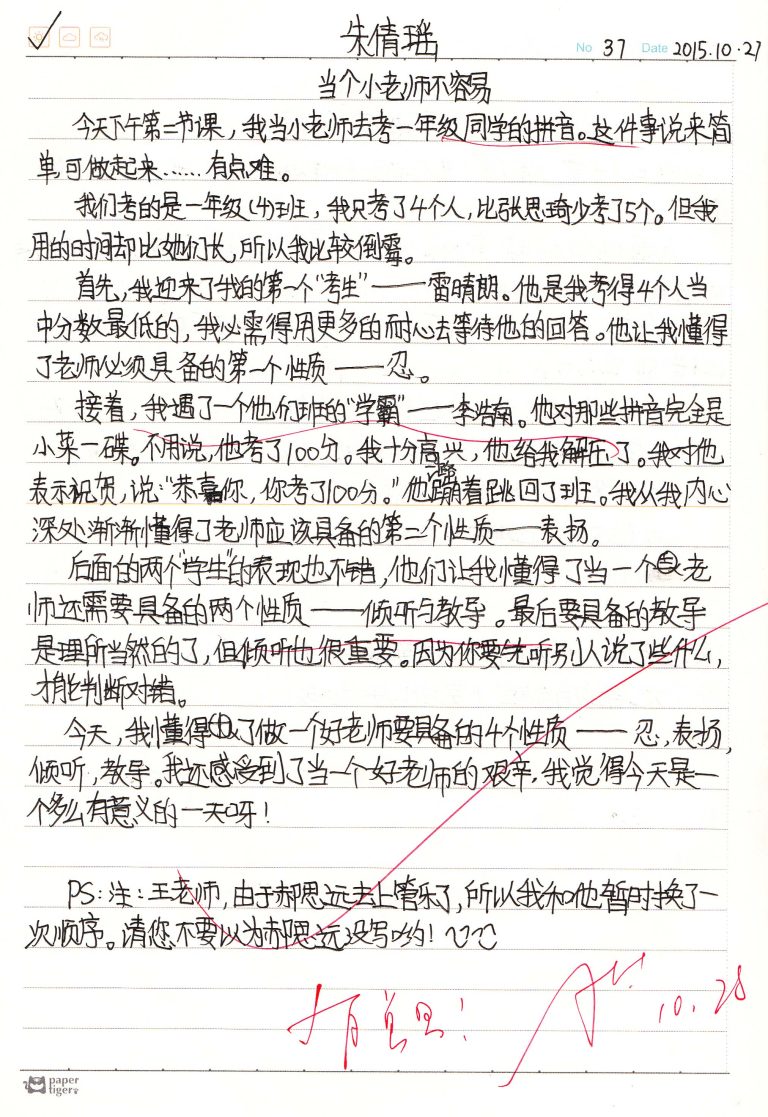 朱倩瑶
No 37 Date 2015.10.27
当个小老师不容易
今天下午第二节课，我当小老师去考一年级同学的拼音。这件事说来简
单，可做起来……有点难。
我们考的是一年级（4）班，我只考了4个人，比张思琦少考了5个。但我
用的时间却比她们长，所以我比较倒霉。
首先，我迎来了我的第一个“考生”——雷晴朗。他是我考得4个人当
中分数最低的，我必需得用更多的耐心去等待他的回答。他让我懂得
了老师必须具备的第一个性质——忍。
接着，我遇了一个他们班的“学霸”——李浩南。他对那些拼音完全是
小菜一碟。不用说，他考了100分。我十分高兴，他给我解压了。我对他
表示祝贺，说：“恭喜你，你考了100分。”他蹦着跳回了班。我从我内心
深处渐渐懂得了老师应该具备的第二个性质——表扬。
后面的两个“学生”的表现也不错，他们让我懂得了当一个老
师还需要具备的两个性质——倾听与教导。最后要具备的教导
是理所当然的了，但倾听也很重要。因为你要先听别人说了些什么，
才能判断对错。
今天，我懂得了做一个好老师要具备的4个性质——忍，表扬，
倾听，教导。我还感受到了当一个好老师的艰辛，我觉得今天是一
个多么有意义的一天呀！
PS：注：王老师，由于郝思远去上管乐了，所以我和他暂时换了一
次顺序。请您不要以为郝思远没写哟！
有意思！ 10.28
paper
tiger